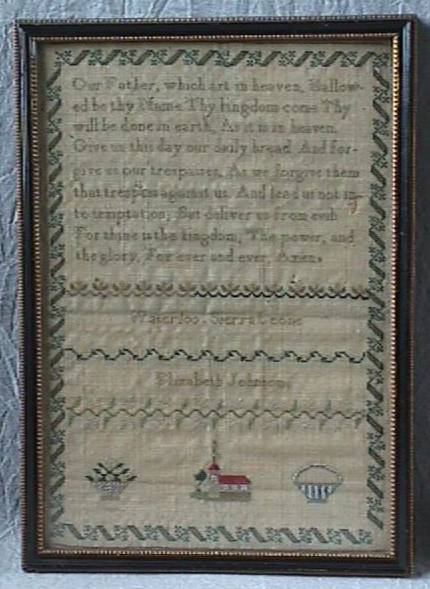 Our Father, which art in heaven, Hallow-
ed be thy Name Thy kingdom come Thy
will be done in earth, As it is in heaven.
Give us this day our daily bread And for-
give us our trespasses, As we forgive them
that trespass against us. And lead us not in-
to temptation; But deliver us from evil:
For thine is the kingdom, The power, and
the glory, For ever and ever, Amen.
Waterloo. Sierra Leone
Elizabeth Johnson.